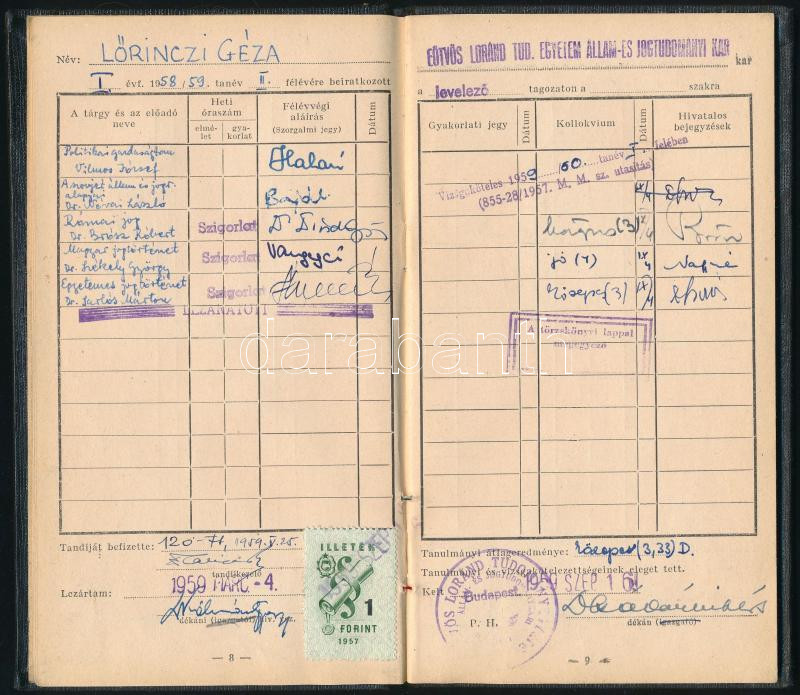 Név: LŐRINCZI GÉZA
I. évf. 1958/59. tanév II. félévére beiratkozott
A tárgy és az előadó neve
Heti óraszám
elmélet
gyakorlat
Félévvégi aláírás
(Szorgalmi jegy)
Dátum
Politikai gazdaságtan
Vilmos József
A szovjet állam és jogt.
alapjai
Dr. Névai László
Római jog
Dr. Brósz Róbert
Szigorlat
Magyar jogtörténet
Dr. Székely György
Szigorlat
Egyetemes jogtörténet
Dr. Sarlós Márton
Szigorlat
LEZÁRATOTT
Tandíját befizette: 120-Ft, 1959. V. 25.
tandíjkezelő
1959 MÁRC -4.
Lezártam:
dékáni (igazgatói) hiv. vez.
ILLETÉK
1
FORINT
1957
— 8 —
EÖTVÖS LORÁND TUD. EGYETEM ÁLLAM-ÉS JOGTUDOMÁNYI KAR kar
a levelező tagozaton a szakra
Gyakorlati jegy
Dátum
Kollokvium
Dátum
Hivatalos bejegyzések
Vizsgaköteles 1959/60. tanév I. felében
(855-28/1957. M. M. sz. utasítás)
közepes (3) IX/4
jó (4) IX/4
közepes (3) IX/4
A törzskönyvi lappal
megegyező
Tanulmányi átlageredménye: közepes (3,33) D.
Tanulmányi és vizsgakötelezettségeinek eleget tett.
Kelt Budapest 1959 SZEP 16.
P. H.
dékán (igazgató)
— 9 —
darabanth